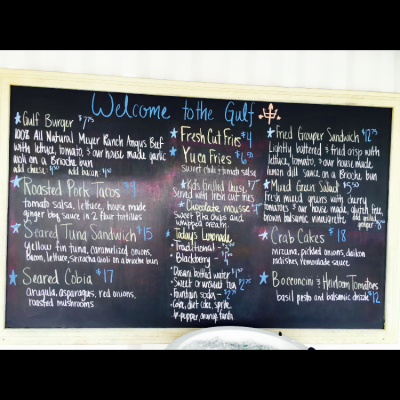 Welcome to the Gulf
Gulf Burger $7.75
100% All Natural Meyer Ranch Angus Beef
with lettuce, tomato, & our house made garlic
aioli on a Brioche bun
add cheese add bacon
Roasted Pork Tacos $9
tomato salsa, lettuce, house made
ginger bbq sauce in 2 flour tortillas
Seared Tuna Sandwich $15
Yellow fin tuna, caramelized onions,
Bacon, lettuce, sriracha aioli on a brioche bun
Seared Cobia $17
arugula, asparagus, red onions,
roasted mushrooms
Fresh Cut Fries $4
Yuca Fries $6.50
sweet chili & tomato salsa
Kids Grilled Cheese $7
served with fresh cut fries
Chocolate mousse $7
sweet Pita chips and
whipped cream
Today's Lemonade
Traditional
Blackberry
Deani bottled water
Sweet or unsweet tea $2.75
fountain soda $2.75
Coke, diet coke, sprite,
dr. pepper, orange fanta
Fried Grouper Sandwich $12.75
Lightly battered & fried crisp with
lettuce, tomato, & our house made
lemon dill sauce on a Brioche bun
Mixed Green Salad $5.50
fresh mixed greens with cherry
tomatoes & our house made
brown balsamic vinaigrette
add grilled grouper
Crab Cakes $18
mizuna, pickled onions, daikon
radishes, remoulade sauce
Bocconcini & Heirloom Tomatoes
basil pesto and balsamic drizzle $12